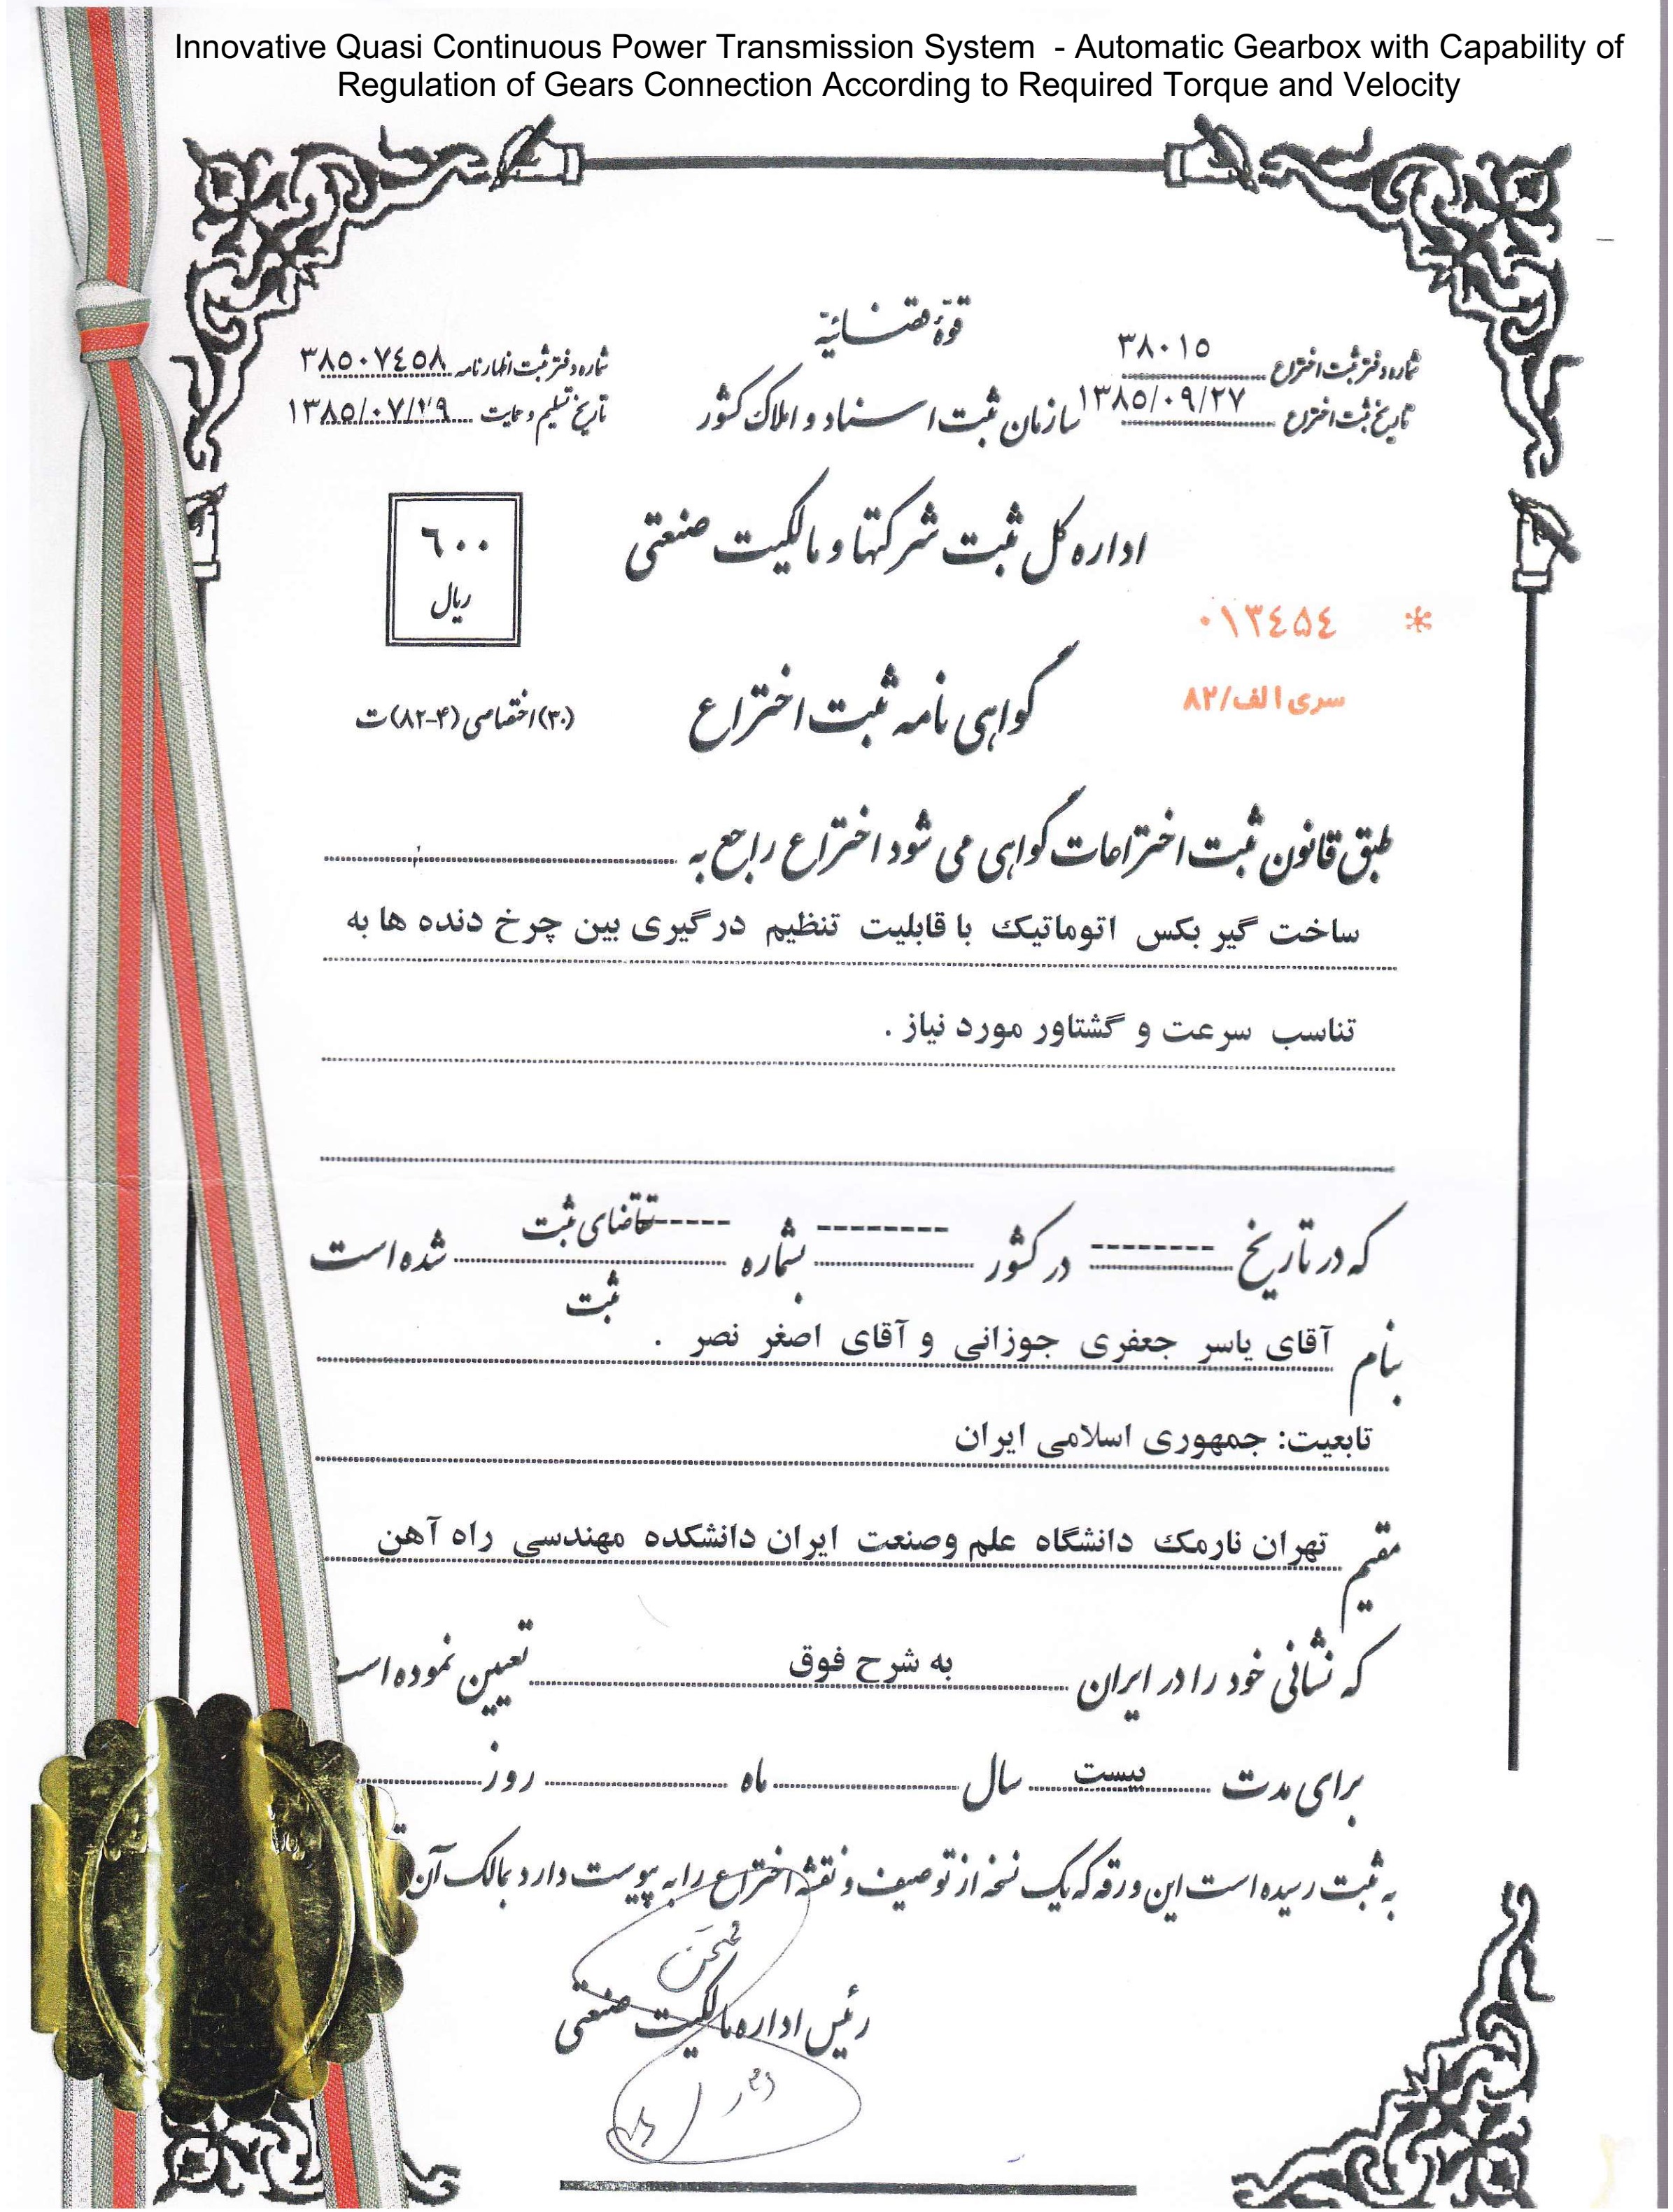 Innovative Quasi Continuous Power Transmission System - Automatic Gearbox with Capability of
Regulation of Gears Connection According to Required Torque and Velocity
قوهٔ قضائیه
شماره دفتر ثبت اختراع ٣٨٠١٥
تاریخ ثبت اختراع ١٣٨٥/٠٩/٢٧
سازمان ثبت اسناد و املاک کشور
شماره دفتر ثبت اظهارنامه ٣٨٥٠٧٤٥٨
تاریخ تسلیم و حمایت ١٣٨٥/٠٧/١٩
اداره کل ثبت شرکتها و مالکیت صنعتی
٦٠٠
ریال
* ٠١٣٤٥٤
سری الف/٨٢
گواهی نامه ثبت اختراع
(٣٠) اختصاصی (۴-٨٢) ت
طبق قانون ثبت اختراعات گواهی می شود اختراع راجع به
ساخت گیر بکس اتوماتیک با قابلیت تنظیم درگیری بین چرخ دنده ها به
تناسب سرعت و گشتاور مورد نیاز .
که در تاریخ -------- در کشور -------- بشماره ----- تقاضای ثبت شده است
ثبت
بنام آقای یاسر جعفری جوزانی و آقای اصغر نصر .
تابعیت: جمهوری اسلامی ایران
مقیم تهران نارمک دانشگاه علم وصنعت ایران دانشکده مهندسی راه آهن
که نشانی خود را در ایران به شرح فوق تعیین نموده است
برای مدت بیست سال ماه روز
به ثبت رسیده است این ورقه که یک نسخه از توصیف و نقشه اختراع را به پیوست دارد بمالک آن
رئیس اداره مالکیت صنعتی